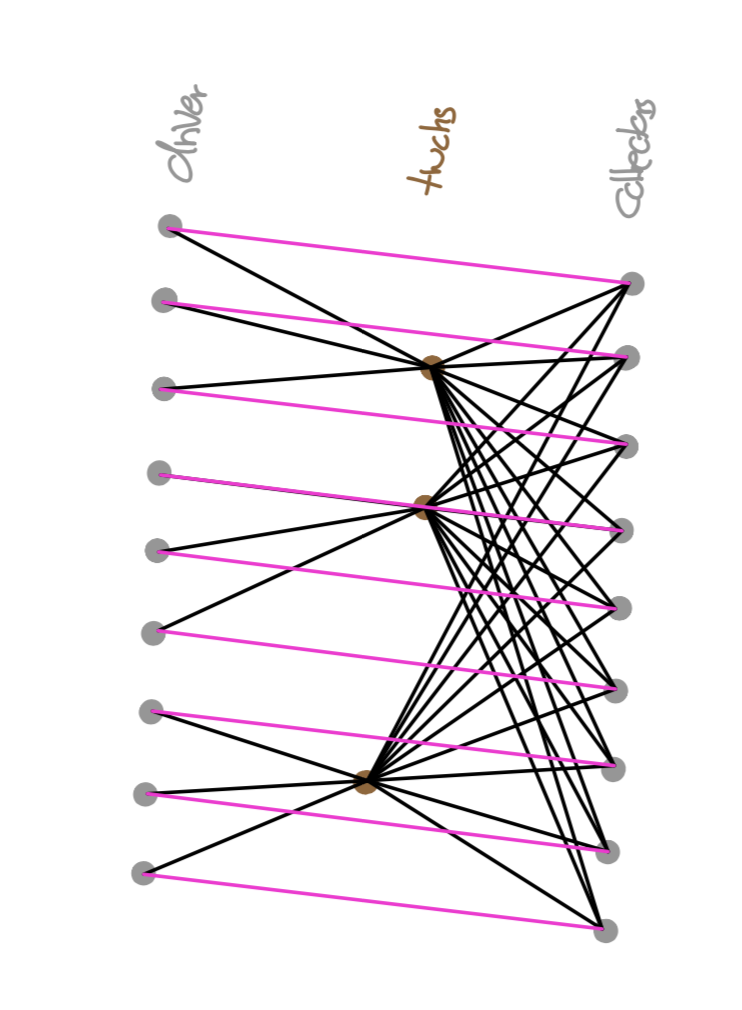 driver
trucks
collectors